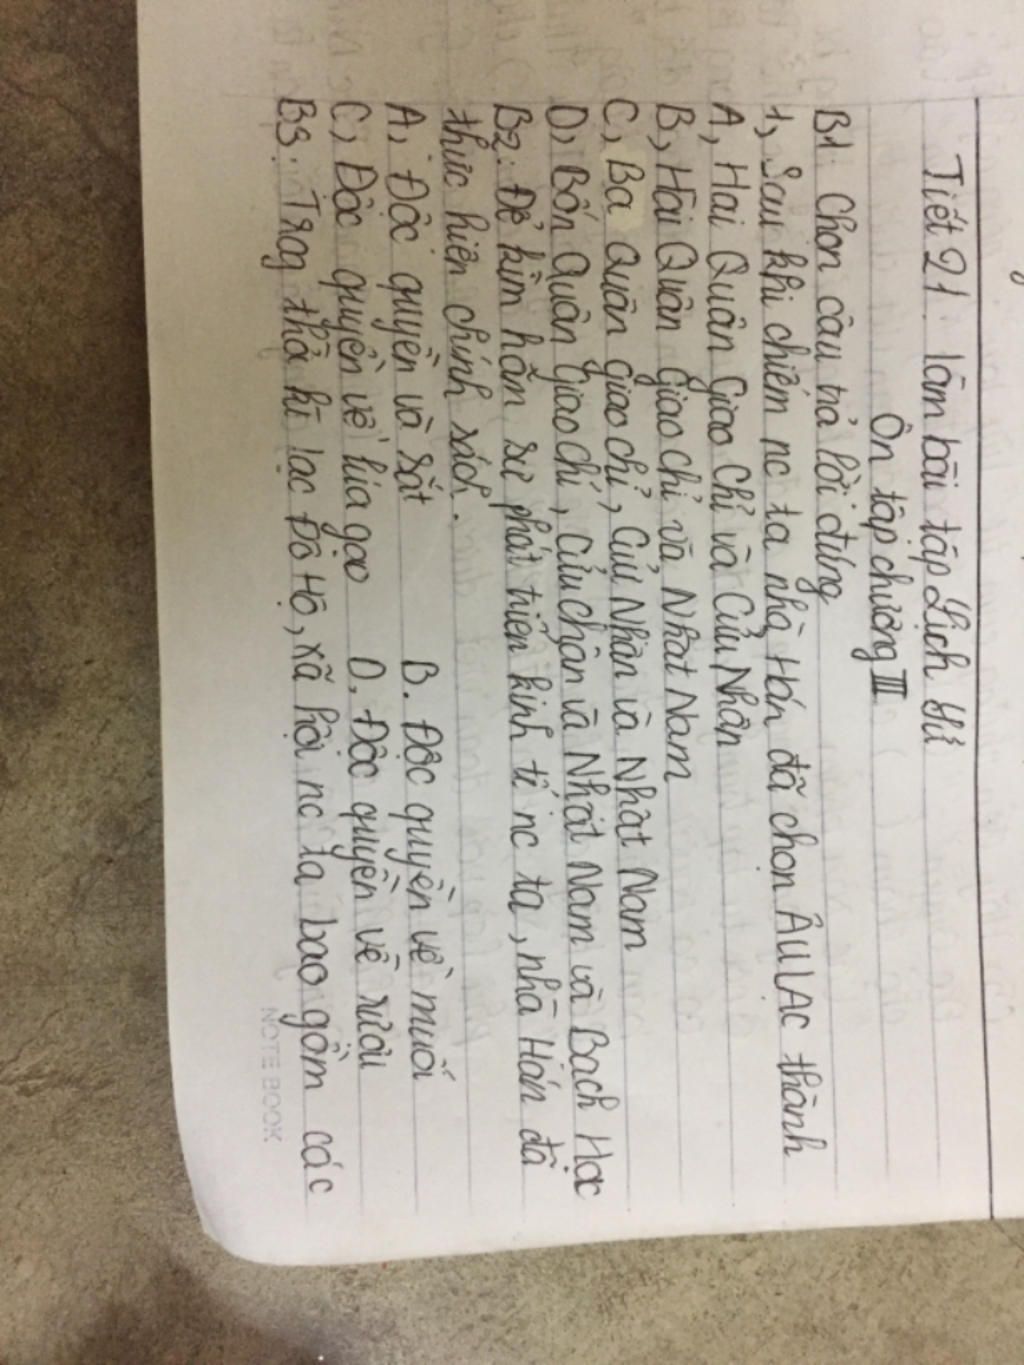 Tiết 21. làm bài tập Lịch sử
Ôn tập chương III
B1. Chọn câu trả lời đúng
1, Sau khi chiếm nc ta nhà Hán đã chọn Âu Lạc thành
A, Hai Quân Giao Chỉ và Cửu Nhân
B, Hai Quân giao chỉ và Nhật Nam
C, Ba Quân giao chỉ, Cửu Nhân và Nhật Nam
D, Bốn Quân giao chỉ, Cửu chân và Nhật Nam và Bạch Hạc
B2: Để kìm hãm sự phát triển kinh tế nc ta, nhà Hán đã
thực hiện chính sách.
A, Độc quyền và sắt B. Độc quyền về muối
C, Độc quyền về lúa gạo D, Độc quyền về rượu
B3: Trog thờ kì lạc Đô Hộ, xã hội nc ta bao gồm các
NOTE BOOK